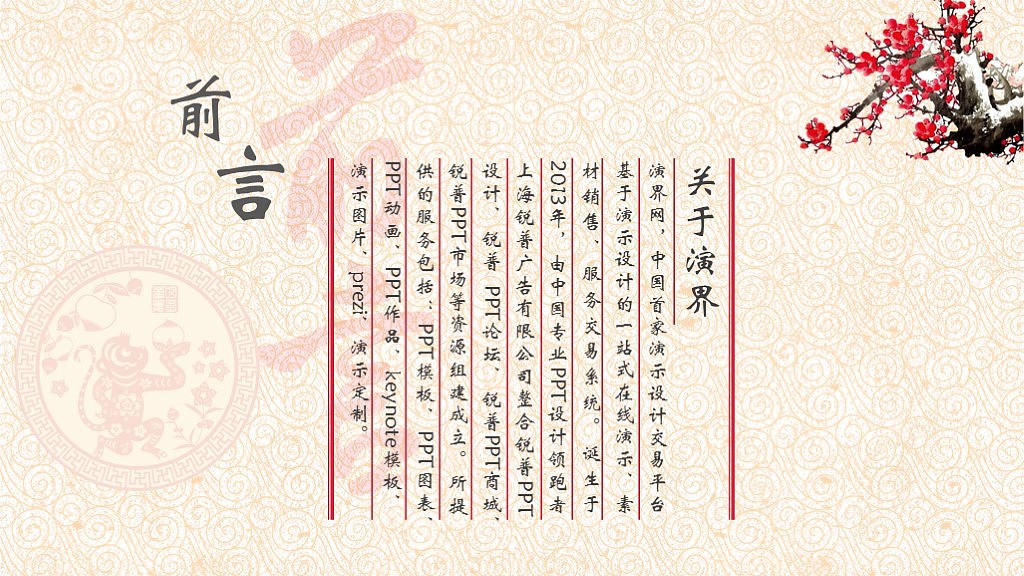 前言
关于演界
演界网，中国首家演示设计交易平台
基于演示设计的一站式在线演示、素
材销售、服务交易系统。诞生于
2013年，由中国专业PPT设计领跑者
上海锐普广告有限公司整合锐普PPT
设计、锐普 PPT论坛、锐普PPT商城、
锐普PPT市场等资源组建成立。所提
供的服务包括：PPT模板、PPT图表、
PPT动画、PPT作品、keynote模板、
演示图片、prezi、演示定制。